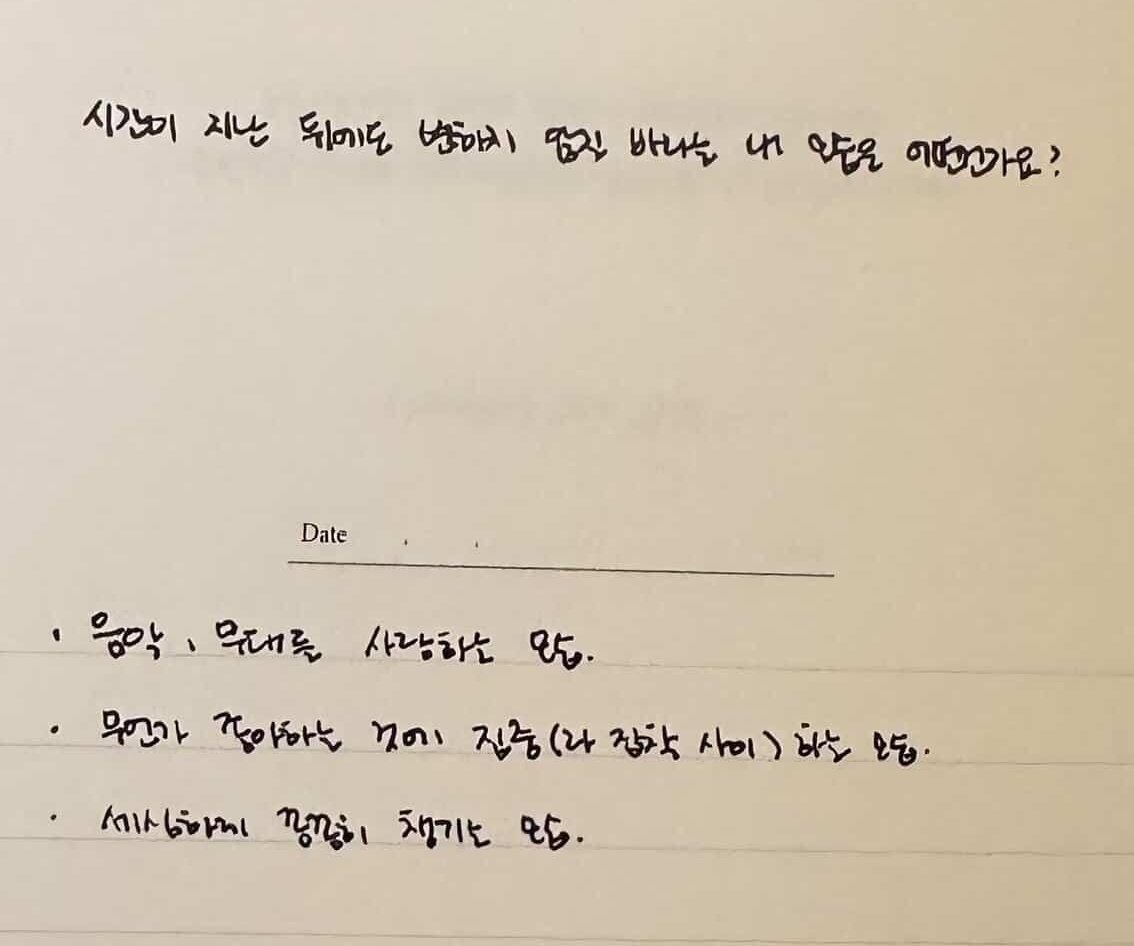 시간이 지난 뒤에도 변하지 않길 바라는 내 모습은 어떤건가요?
Date . .
· 음악, 무대를 사랑하는 모습.
· 무언가 좋아하는 것에 집중(과 집착 사이)하는 모습.
· 세심하게 꼼꼼히 챙기는 모습.